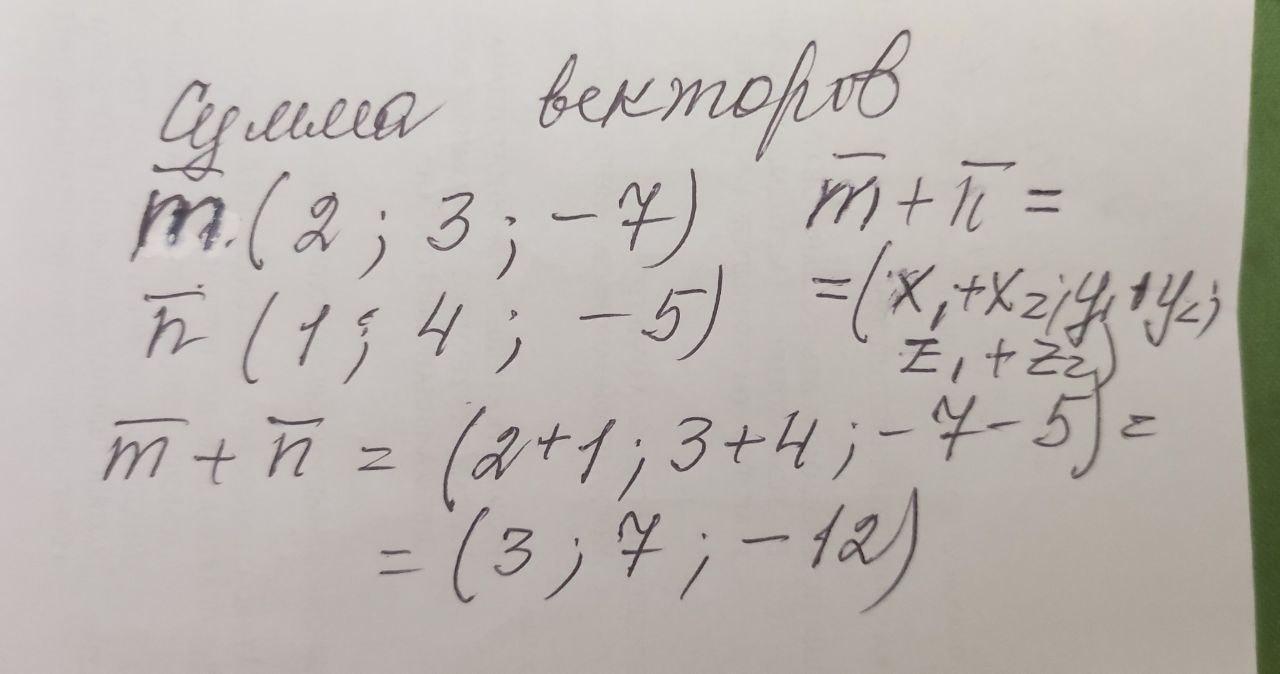 Сумма векторов
m̅ (2 ; 3 ; -7) m̅ + n̅ =
n̅ (1 ; 4 ; -5) = (x₁+x₂; y₁+y₂;
z₁ + z₂)
m̅ + n̅ = (2+1 ; 3+4 ; -7-5) =
= (3 ; 7 ; -12)